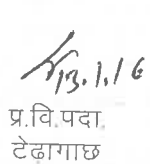 13.1.16
प्र.वि.पदा.
टेढ़ागाछ